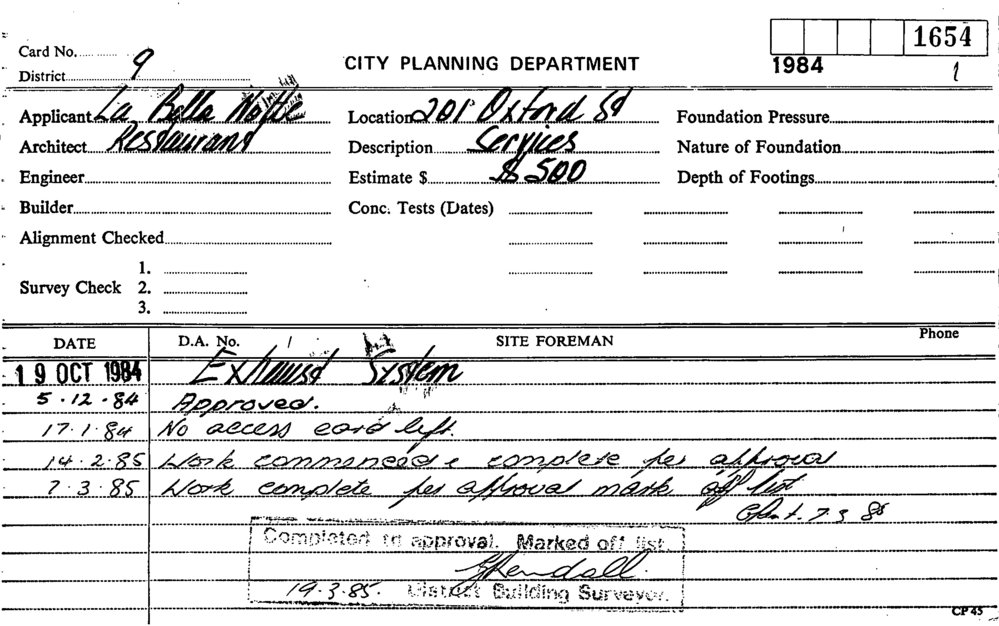 1654
Card No. 9
CITY PLANNING DEPARTMENT
1984
1
District
Applicant La Bella Notte
Location 201 Oxford St
Foundation Pressure
Architect Restaurant
Description Services
Nature of Foundation
Engineer
Estimate $ $500
Depth of Footings
Builder
Conc. Tests (Dates)
Alignment Checked
1.
Survey Check 2.
3.
DATE D.A. No. SITE FOREMAN Phone
19 OCT 1984 Exhaust System
5.12.84 Approved.
17.1.84 No access card left.
14.2.85 Work commenced & complete per approval
7.3.85 Work complete per approval mark off list
7.3.85
Completed to approval. Marked off list.
Kendall.
19.3.85. District Building Surveyor.
CP 45